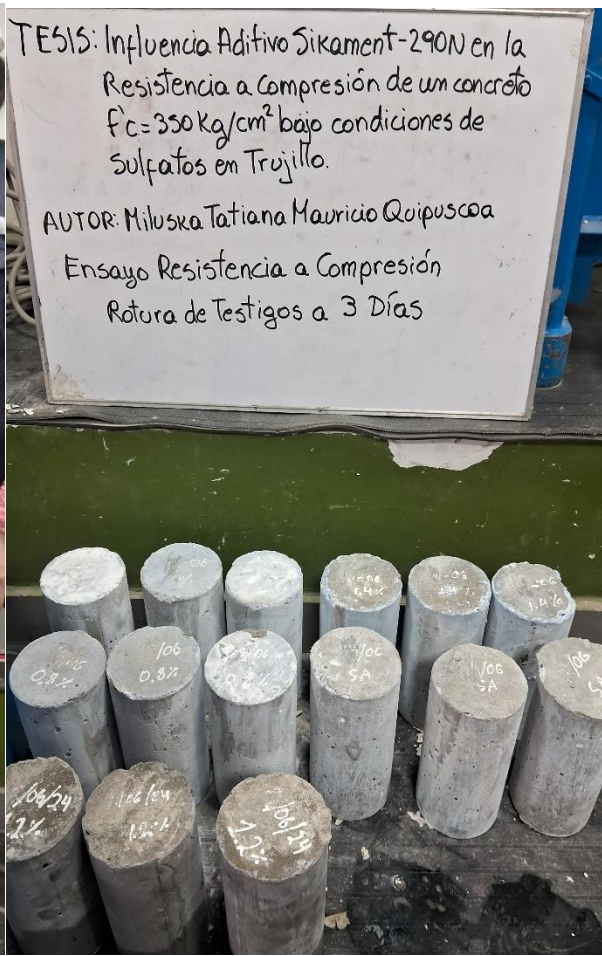 TESIS: Influencia Aditivo Sikament-290N en la
Resistencia a Compresión de un concreto
f'c=350 Kg/cm² bajo condiciones de
Sulfatos en Trujillo.
AUTOR: Miluska Tatiana Mauricio Quipuscoa
Ensayo Resistencia a Compresión
Rotura de Testigos a 3 Días
-06
1.4%
-06
1.4%
0.8%
/06
0.8%
/06
/06
SA
/06
SA
/06
/06/24
1.2%
/06/24
1.2%